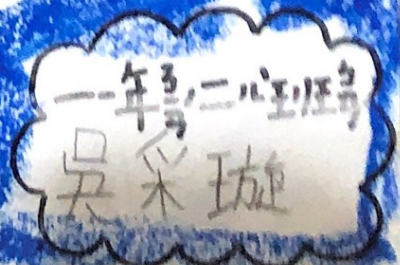 一ㄧ年ㄋㄧㄢˊ二ㄦˋ班ㄅㄢ
吳采璇